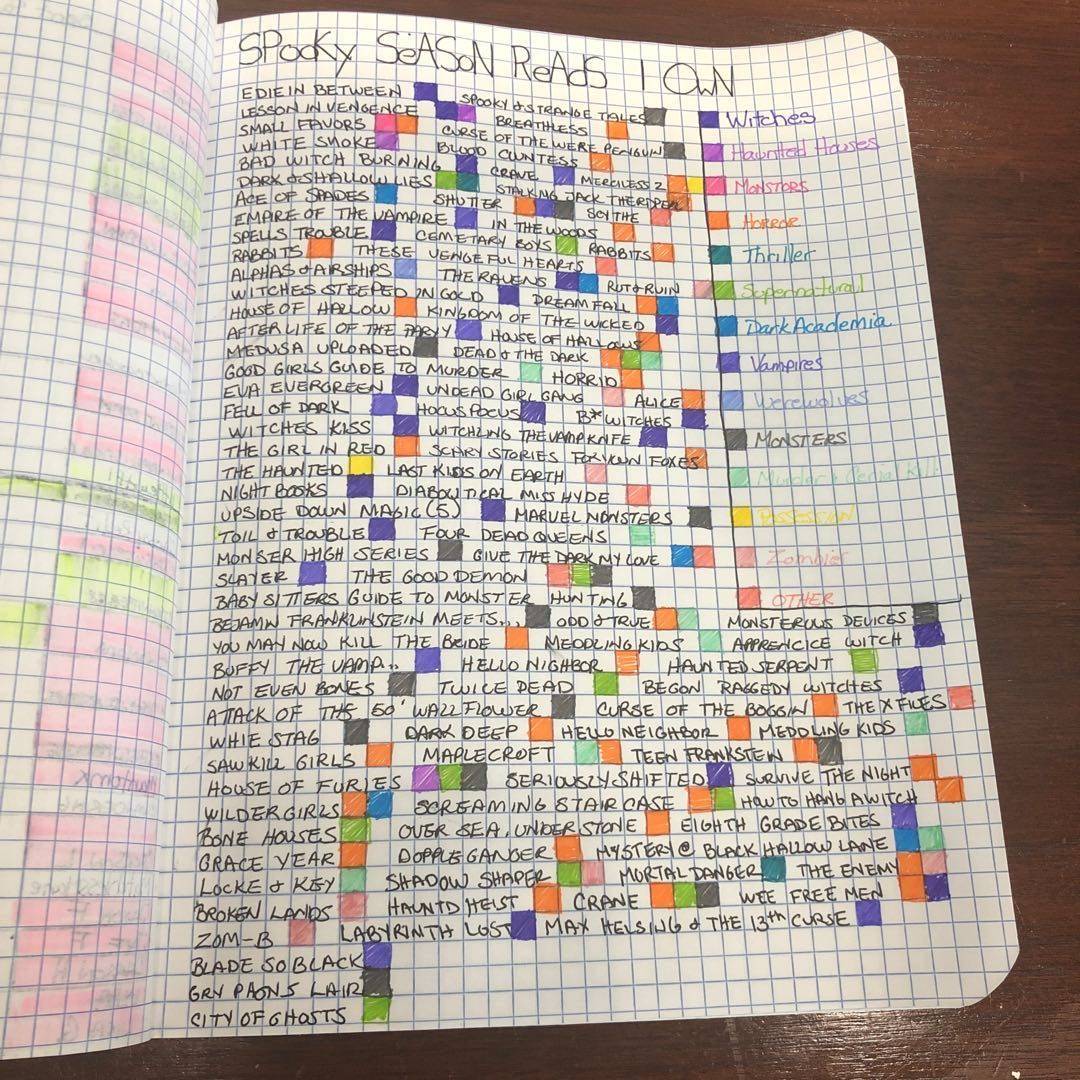 SPOOKY SEASON READS I OWN
EDIE IN BETWEEN SPOOKY & STRANGE TALES Witches
LESSON IN VENGENCE BREATHLESS
SMALL FAVORS CURSE OF THE WERE PENGUIN Haunted Houses
WHITE SMOKE BLOOD CUNTESS
BAD WITCH BURNING CRAVE MERCILESS 2 MONSTORS
DARK & SHALLOW LIES STALKING JACK THE RIPPER
ACE OF SPADES SHUTTER SCYTHE HORROR
EMPIRE OF THE VAMPIRE IN THE WOODS
SPELLS TROUBLE CEMETARY BOYS RABBITS Thriller
RABBITS THESE VENGEFUL HEARTS
ALPHAS & AIRSHIPS THE RAVENS RUT & RUIN Supernatural
WITCHES STEEPED IN GOLD DREAM FALL
HOUSE OF HALLOW KINGDOM OF THE WICKED Dark Academia
AFTER LIFE OF THE PARYY HOUSE OF HALLOWS
MEDUSA UPLOADED DEAD & THE DARK Vampires
GOOD GIRLS GUIDE TO MURDER HORRID
EVA EVERGREEN UNDEAD GIRL GANG ALICE Werewolves
FELL OF DARK HOCUS POCUS B*WITCHES
WITCHES KISS WITCHLING THE VAMP KNIFE MONSTERS
THE GIRL IN RED SCARY STORIES FOR YOUN FOXES
THE HAUNTED LAST KIDS ON EARTH
NIGHT BOOKS DIABOLTICAL MISS HYDE
UPSIDE DOWN MAGIC (5) MARVEL MONSTERS POSSESSION
TOIL & TROUBLE FOUR DEAD QUEENS
MONSER HIGH SERIES GIVE THE DARK MY LOVE Zombies
SLAYER THE GOOD DEMON
BABY SITTERS GUIDE TO MONSTER HUNTING OTHER
BEJAMIN FRANKLINSTEIN MEETS... ODD & TRUE MONSTEROUS DEVICES
YOU MAY NOW KILL THE BRIDE MEDDLING KIDS APPRENCICE WITCH
BUFFY THE VAMP.. HELLO NIGHBOR HAUNTED SERPENT
NOT EVEN BONES TWICE DEAD BEGON RAGGEDY WITCHES
ATTACK OF THS 50' WALL FLOWER CURSE OF THE BOGGIN THE X FILES
WHIE STAG DARK DEEP HELLO NEIGHBOR MEDDLING KIDS
SAWKILL GIRLS MAPLECROFT TEEN FRANKSTEIN
HOUSE OF FURIES SERIOUSLY SHIFTED SURVIVE THE NIGHT
WILDER GIRLS SCREAMING STAIR CASE HOW TO HANG A WITCH
BONE HOUSES OVER SEA, UNDER STONE EIGHTH GRADE BITES
GRACE YEAR DOPPLEGANGER MYSTERY @ BLACK HALLOW LANE
LOCKE & KEY SHADOW SHAPER MORTAL DANGER THE ENEMY
BROKEN LANDS HAUNTD HEIST CRANE WEE FREE MEN
ZOM-B LABYRINTH LOST MAX HELSING & THE 13th CURSE
BLADE SO BLACK
GRY PAONS LAIR
CITY OF GHOSTS